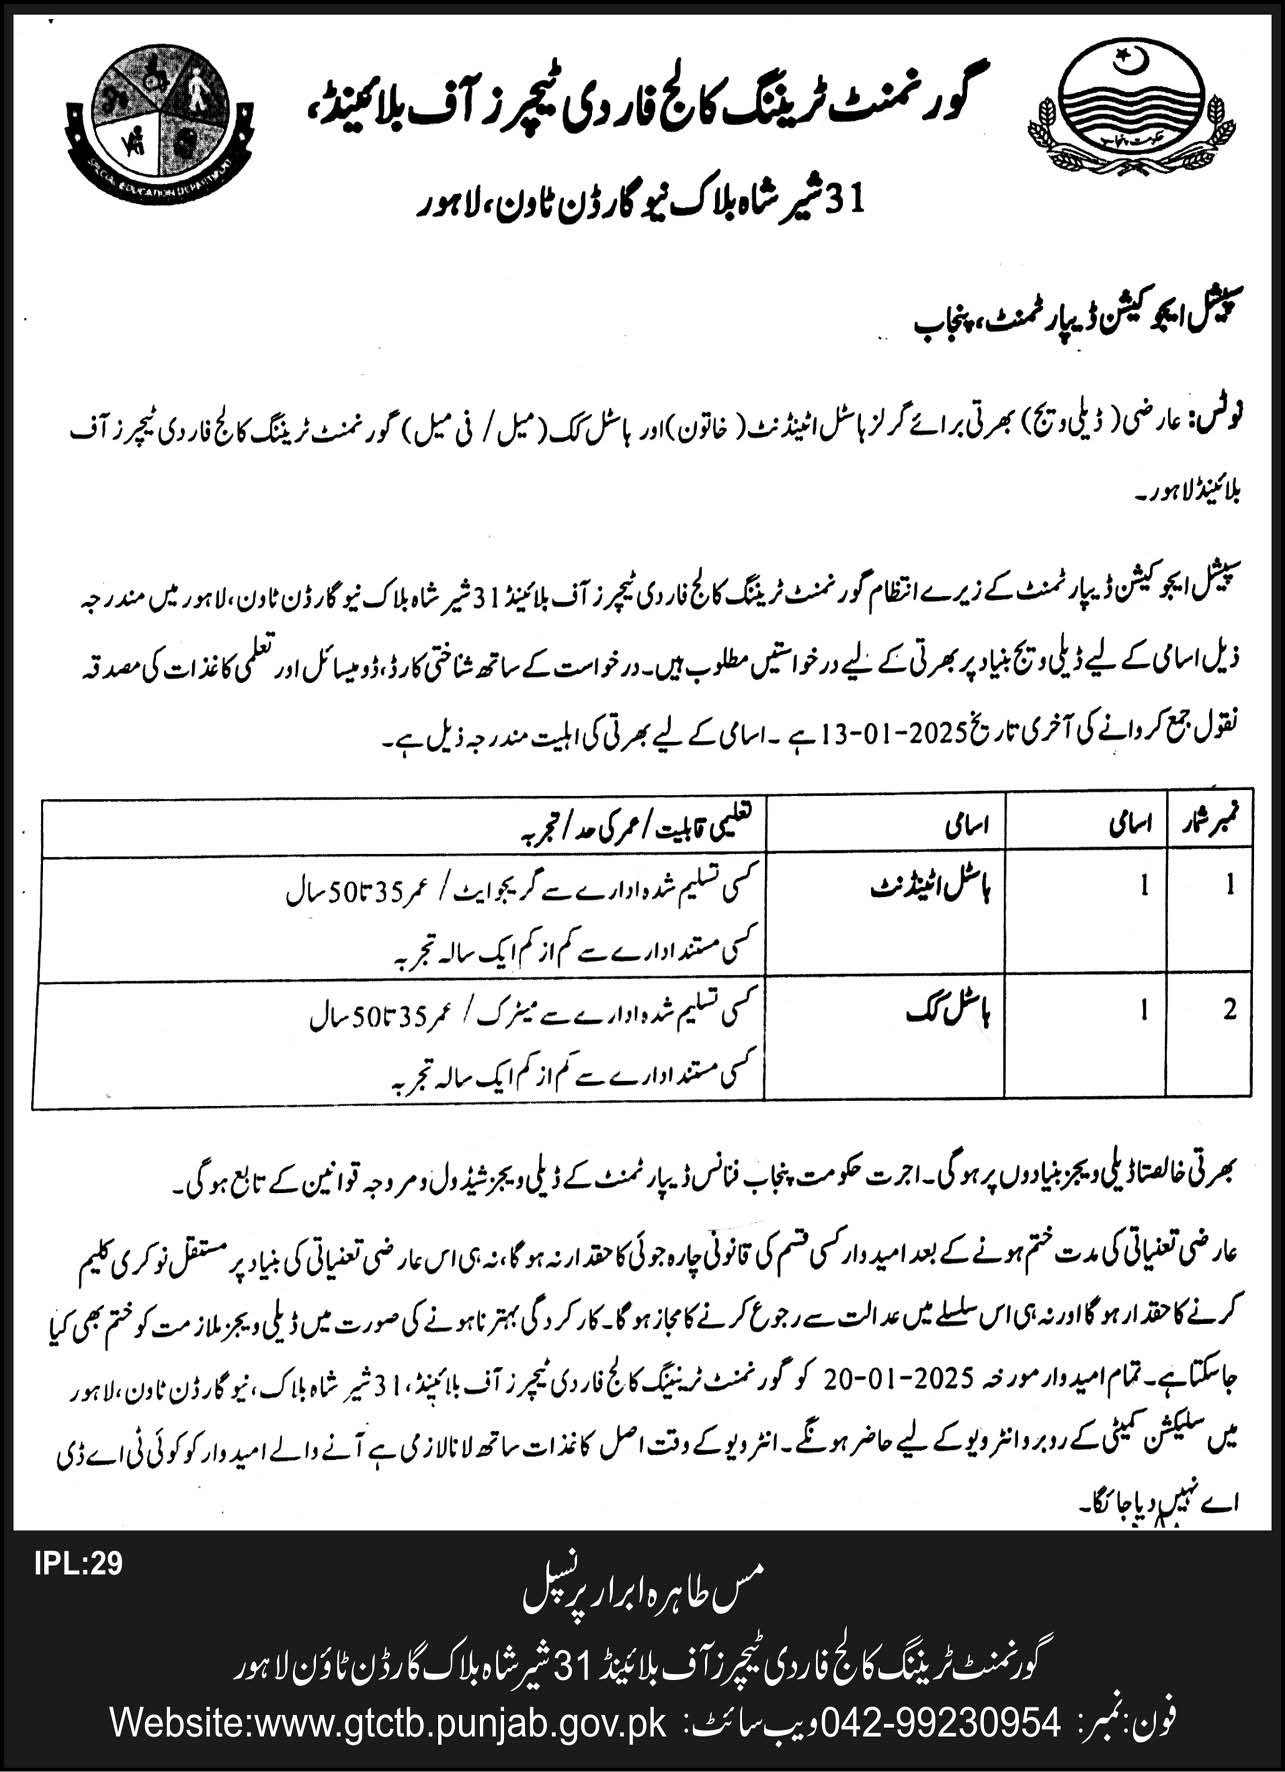 گورنمنٹ ٹریننگ کالج فار دی ٹیچرز آف بلائینڈ،
31 شیر شاہ بلاک نیو گارڈن ٹاون، لاہور
حکومت پنجاب
SPECIAL EDUCATION DEPARTMENT
سپیشل ایجوکیشن ڈیپارٹمنٹ، پنجاب
نوٹس: عارضی (ڈیلی ویج) بھرتی برائے گرلز ہاسٹل اٹینڈنٹ (خاتون) اور ہاسٹل کک (میل / فی میل) گورنمنٹ ٹریننگ کالج فار دی ٹیچرز آف
بلائینڈ لاہور۔
سپیشل ایجوکیشن ڈیپارٹمنٹ کے زیرے انتظام گورنمنٹ ٹریننگ کالج فار دی ٹیچرز آف بلائینڈ 31 شیر شاہ بلاک نیو گارڈن ٹاون، لاہور میں مندرجہ
ذیل اسامی کے لیے ڈیلی ویج بنیاد پر بھرتی کے لیے درخواستیں مطلوب ہیں۔ درخواست کے ساتھ شناختی کارڈ، ڈومیسائل اور تعلمی کاغذات کی مصدقہ
نقول جمع کروانے کی آخری تاریخ 2025-01-13 ہے ۔ اسامی کے لیے بھرتی کی اہلیت مندرجہ ذیل ہے۔
نمبر شمار اسامی اسامی تعلیمی قابلیت / عمر کی حد / تجربہ
1 1 ہاسٹل اٹینڈنٹ کسی تسلیم شدہ ادارے سے گریجوایٹ / عمر 35 تا 50 سال
کسی مستند ادارے سے کم از کم ایک سالہ تجربہ
2 1 ہاسٹل کک کسی تسلیم شدہ ادارے سے میٹرک / عمر 35 تا 50 سال
کسی مستند ادارے سے کم از کم ایک سالہ تجربہ
بھرتی خالصتا ڈیلی ویجز بنیادوں پر ہوگی۔ اجرت حکومت پنجاب فنانس ڈیپارٹمنٹ کے ڈیلی ویجز شیڈول و مروجہ قوانین کے تابع ہوگی۔
عارضی تعنیاتی کی مدت ختم ہونے کے بعد امیدوار کسی قسم کی قانونی چارہ جوئی کا حقدار نہ ہو گا، نہ ہی اس عارضی تعنیاتی کی بنیاد پر مستقل نوکری کلیم
کرنے کا حقدار ہو گا اور نہ ہی اس سلسلے میں عدالت سے رجوع کرنے کا مجاز ہو گا۔ کارکردگی بہتر نا ہونے کی صورت میں ڈیلی ویجز ملازمت کو ختم بھی کیا
جا سکتا ہے۔ تمام امیدوار مورخہ 2025-01-20 کو گورنمنٹ ٹریننگ کالج فار دی ٹیچرز آف بلائینڈ، 31 شیر شاہ بلاک، نیو گارڈن ٹاون، لاہور
میں سلیکشن کمیٹی کے روبرو انٹرویو کے لیے حاضر ہونگے۔ انٹرویو کے وقت اصل کاغذات ساتھ لانا لازمی ہے آنے والے امیدوار کو کوئی ٹی اے ڈی
اے نہیں دیا جائگا۔
IPL:29
مس طاہرہ ابرار پرنسپل
گورنمنٹ ٹریننگ کالج فار دی ٹیچرز آف بلائینڈ 31 شیر شاہ بلاک گارڈن ٹاؤن لاہور
فون: نمبر: 042-99230954 ویب سائٹ: Website:www.gtctb.punjab.gov.pk